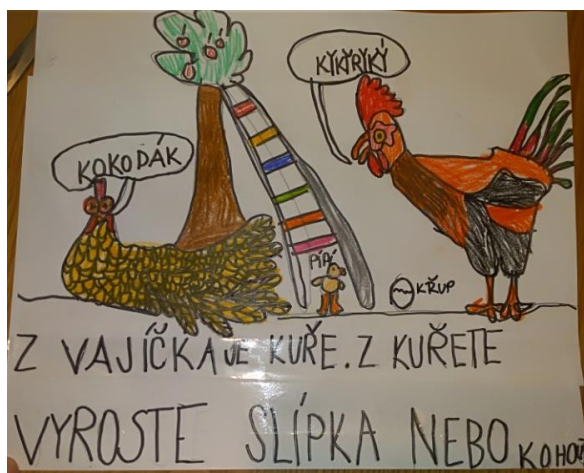 KYKYRYKÝ
KOKODÁK
PÍPÍ
KŘUP
Z VAJÍČKA JE KUŘE. Z KUŘETE
VYROSTE SLÍPKA NEBO KOHOT